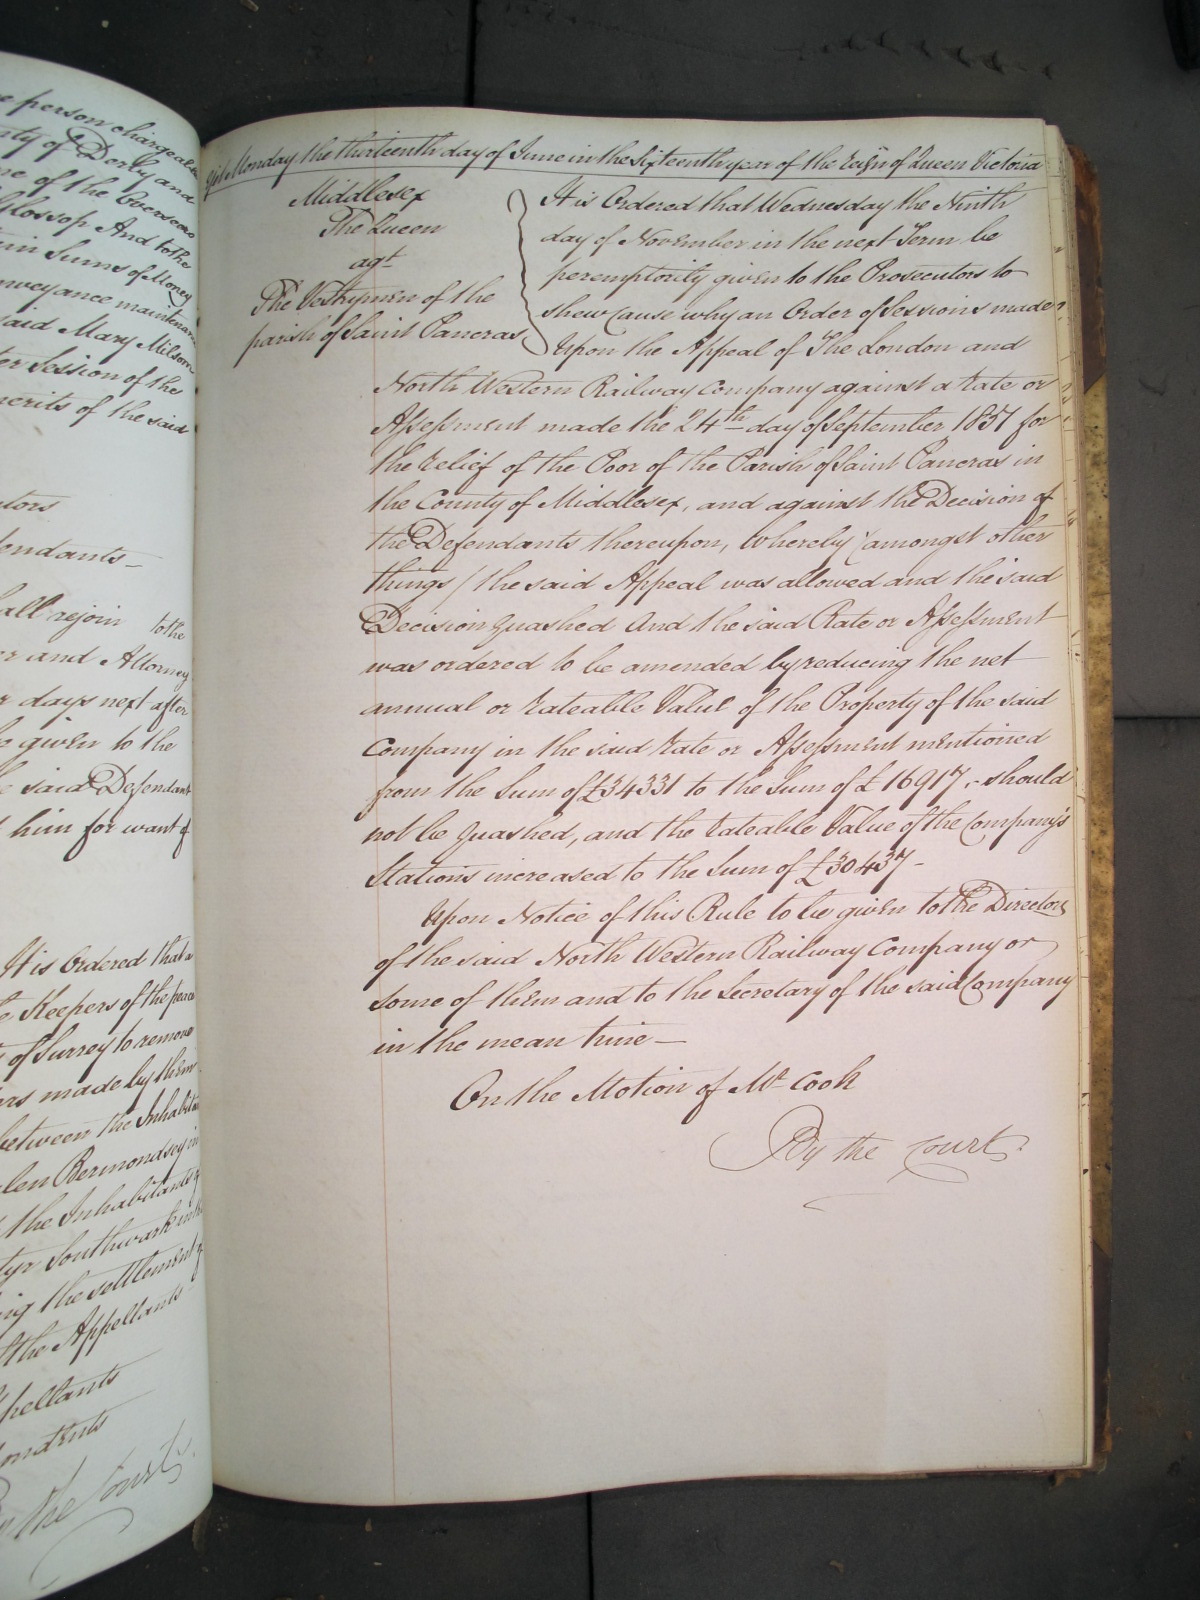 e person chargeable
nty of Derby and
ne of the Overseers
Glossop And to the
tain Sums of Money
nveyance maintenance
said Mary Milson
ter Session of the
merits of the said
utors
fendants
hall rejoin to the
er and Attorney
r days next after
be given to the
e said Defendant
t him for want of
It is Ordered that a
e Keepers of the peace
of Surrey to remove
ors made by them
between the Inhabitants
len Bermondsey in
the Inhabitants of
tyr Southwark in the
ing the settlement of
the Appellants
pellants
ondents
By the Court
Yet Monday the thirteenth day of June in the Sixteenth year of the Reign of Queen Victoria
Middlesex
The Queen
agt
The Vestrymen of the
parish of Saint Pancras
It is Ordered that Wednesday the Ninth
day of November in the next Term be
peremptorily given to the Prosecutors to
shew Cause why an Order of Sessions made
Upon the Appeal of The London and
North Western Railway Company against a Rate or
Assessment made the 24th day of September 1851 for
the relief of the Poor of the Parish of Saint Pancras in
the County of Middlesex, and against the Decision of
the Defendants thereupon, Whereby (amongst other
things) the said Appeal was allowed and the said
Decision quashed And the said Rate or Assessment
was ordered to be amended by reducing the net
annual or rateable Value of the Property of the said
Company in the said Rate or Assessment mentioned
from the Sum of £34331 to the Sum of £16917 .- should
not be quashed, and the rateable Value of the Company's
Stations increased to the Sum of £30437 -
Upon Notice of this Rule to be given to the Directors
of the said North Western Railway Company or
some of them and to the Secretary of the said Company
in the mean time —
On the Motion of Mr Cook
By the Court